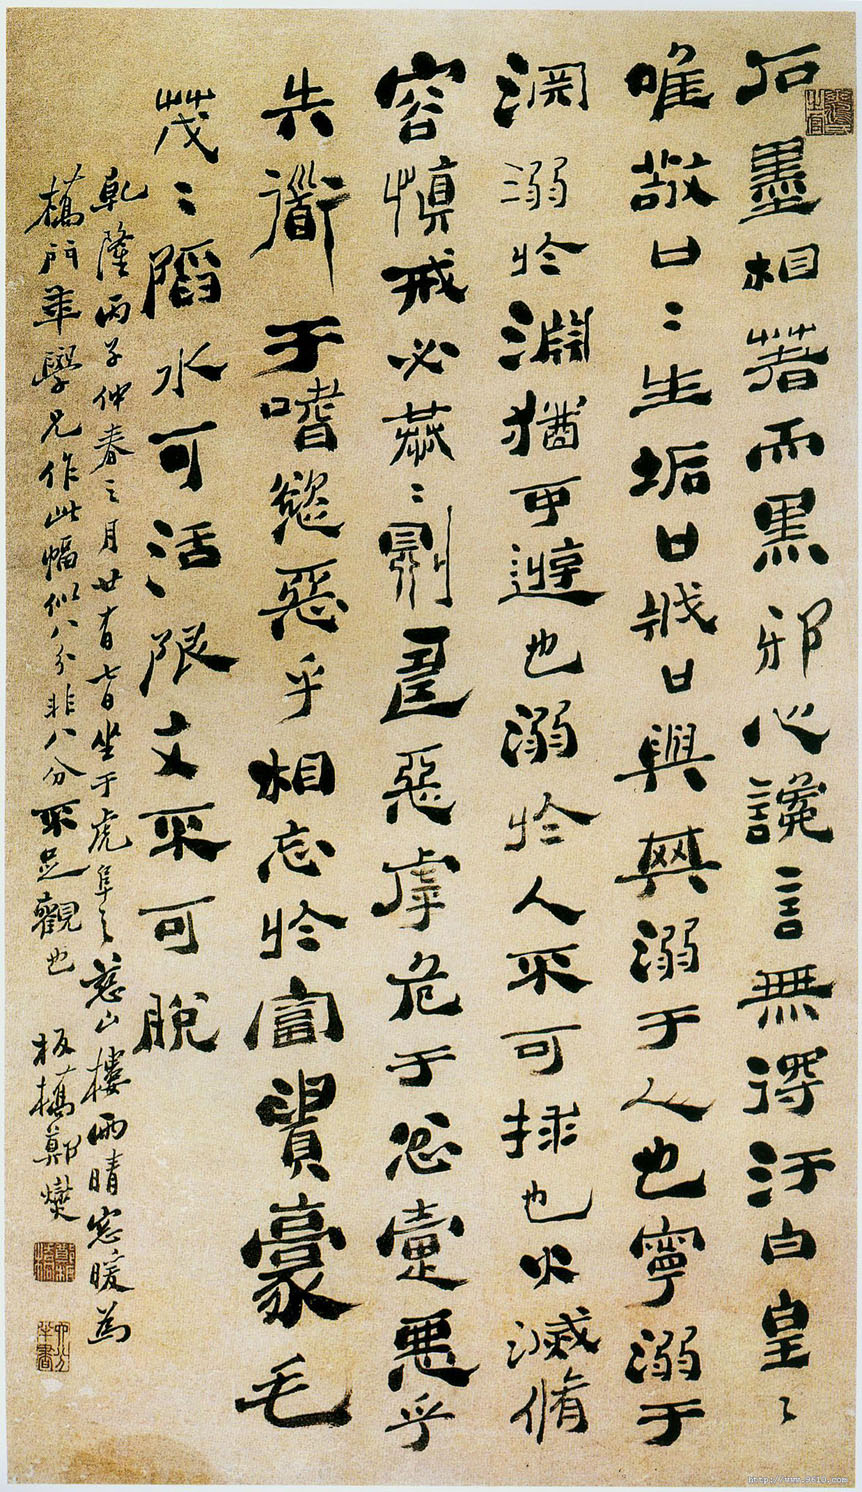 石墨相著而黑邪心讒言無得汙白皇〻
唯敬口〻生垢口戕口與其溺于人也寧溺于
淵溺於淵猶可遊也溺於人不可救也火滅脩
容慎戒必恭〻則壽惡虖危于忿疐惡乎
失道于嗜慾惡乎相忘於富貴豪毛
茂〻陷水可活限文不可脫
乾隆丙子仲春之月廿有七日坐于虎阜之慈山樓雨晴窗暖為
橋門年學兄作此幅似八分非八分不足觀也 板橋鄭燮
http://www.9610.com